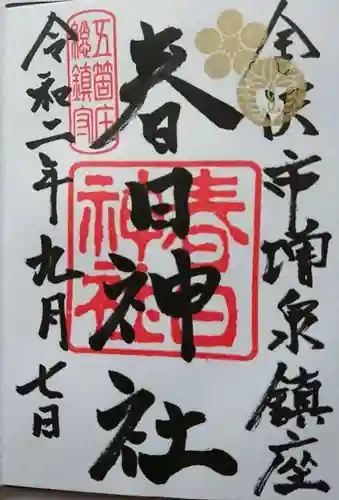 金沢市増泉鎮座
春日神社
春日神社
五箇庄
総鎮守
令和二年九月七日